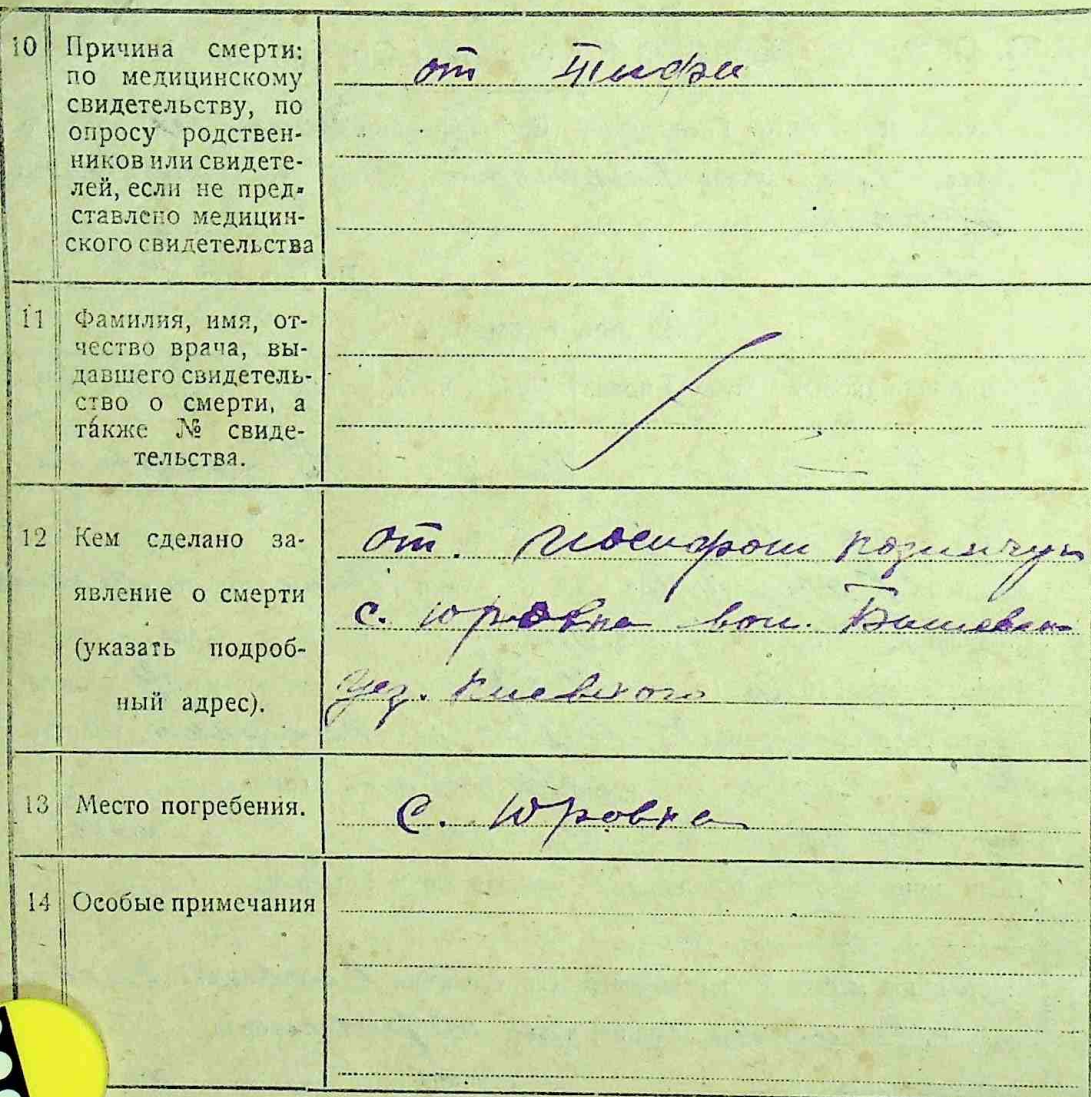 10 Причина смерти:
по медицинскому
свидетельству, по
опросу родствен-
ников или свидете-
лей, если не пред-
ставлено медицин-
ского свидетельства
от Тифа
11 Фамилия, имя, от-
чество врача, вы-
давшего свидетель-
ство о смерти, а
также № свиде-
тельства.
12 Кем сделано за-
явление о смерти
(указать подроб-
ный адрес).
от. Иосифом
с. Юровка вол.
уез. Киевского
13 Место погребения.
с. Юровка
14 Особые примечания